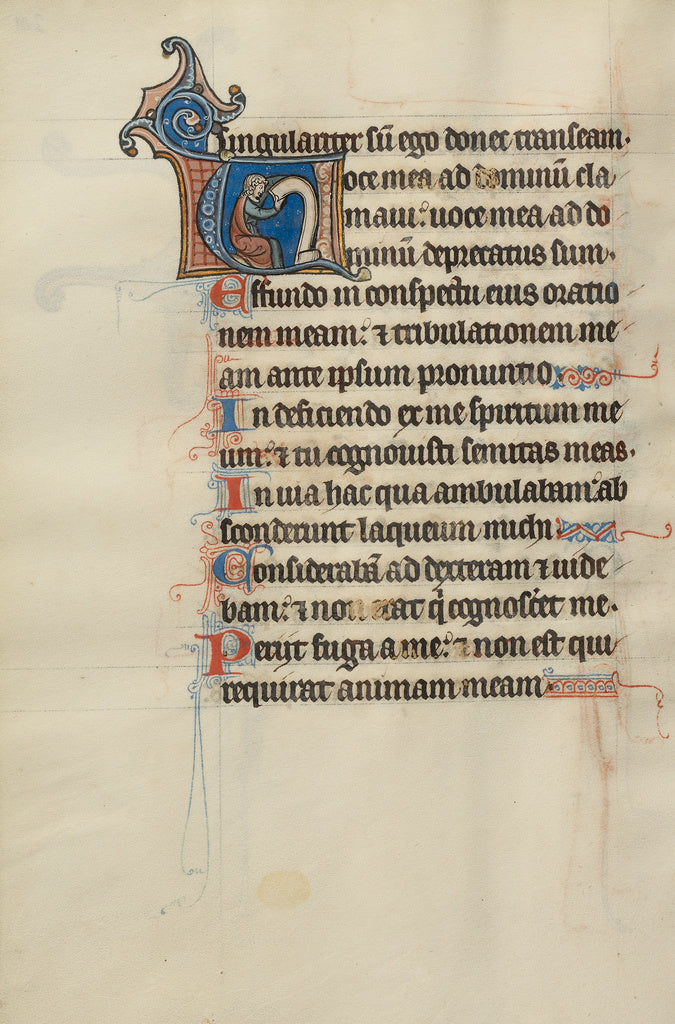 singulariter sū ego donec transeam.
Voce mea ad dominū cla
maui: uoce mea ad do
minū deprecatus sum.
Effundo in conspectu eius oratio
nem meam: ⁊ tribulationem me
am ante ipsum pronuntio
In deficiendo ex me spiritum me
um: ⁊ tu cognouisti semitas meas.
In uia hac qua ambulabam: ab
sconderunt laqueum michi
Considerabā ad dexteram ⁊ uide
bam: ⁊ non erat q̄ cognosc̄et me.
Perijt fuga a me: ⁊ non est qui
requirat animam meam